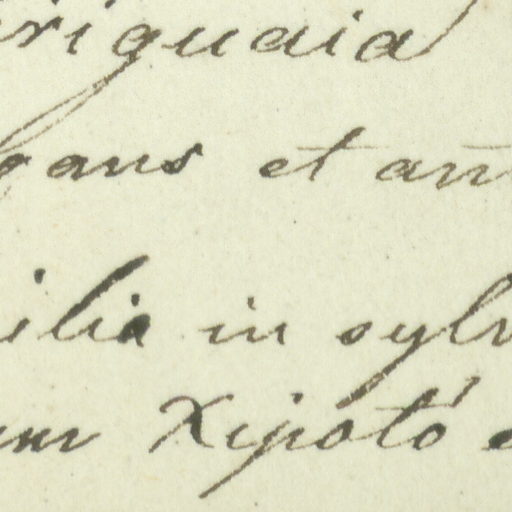 iriguaia
gans et an
ilia in sylv
um Xipotó e